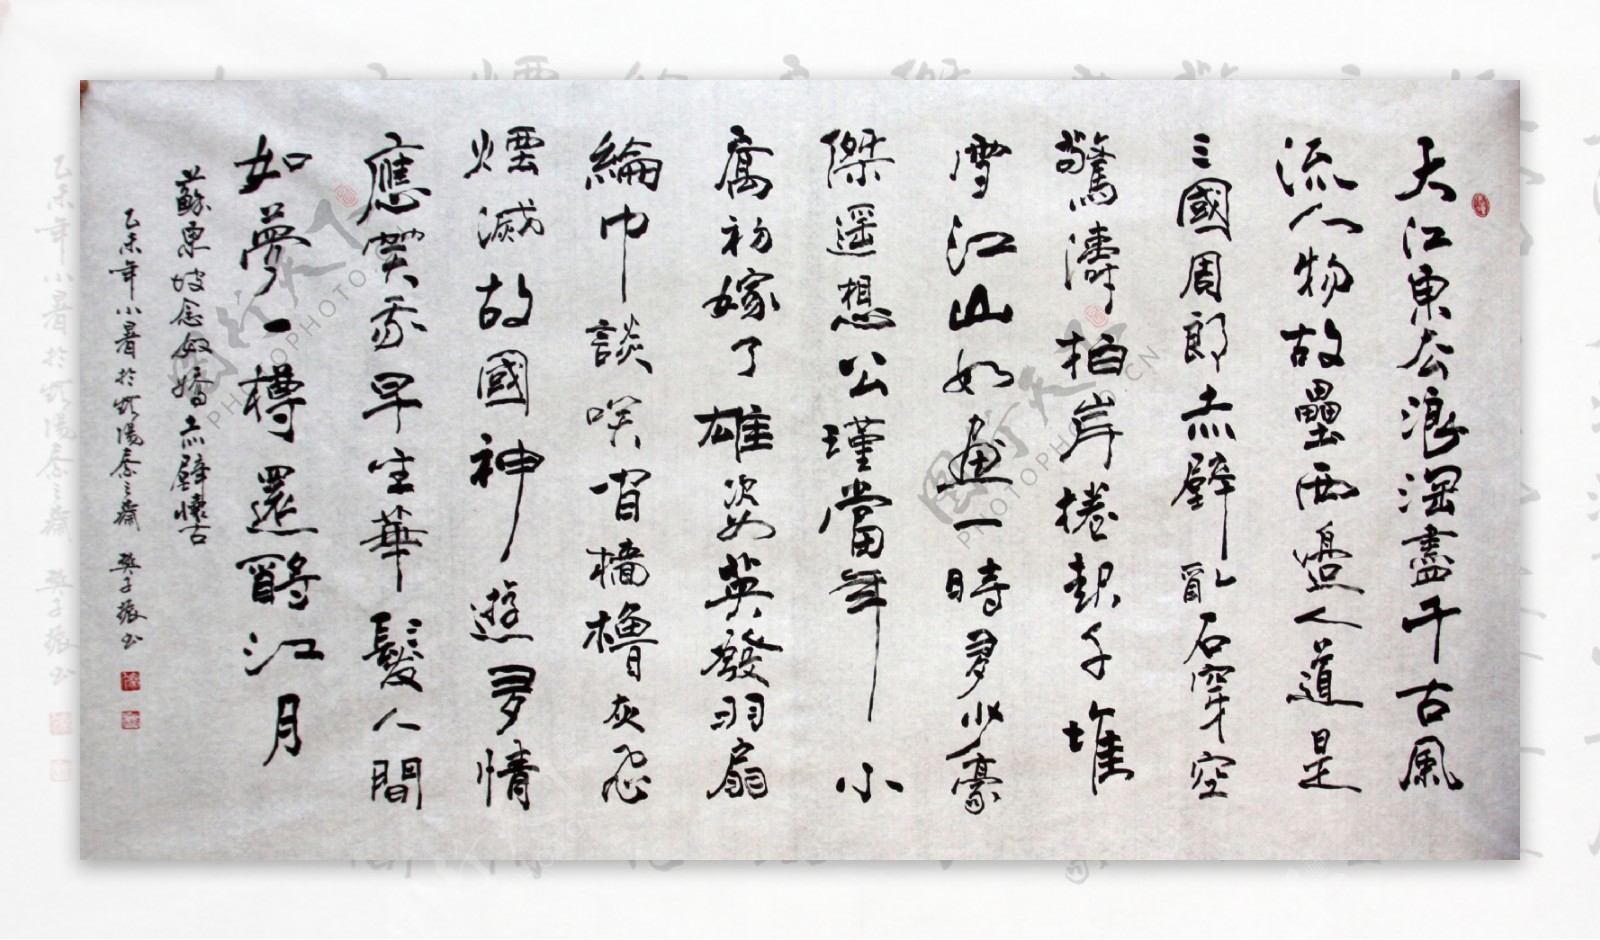 大江東去浪淘盡千古風
流人物故壘西邊人道是
三國周郎赤壁亂石穿空
驚濤拍岸捲起千堆
雪江山如畫一時多少豪
傑遥想公瑾當年小
喬初嫁了雄姿英發羽扇
綸巾談咲間檣櫓灰飛
煙滅故國神遊多情
應笑我早生華髮人間
如夢一樽還酹江月
蘇東坡念奴嬌赤壁懷古
乙未年小暑於陽泰之齋 子振书
PHOTOPHOTO.CN